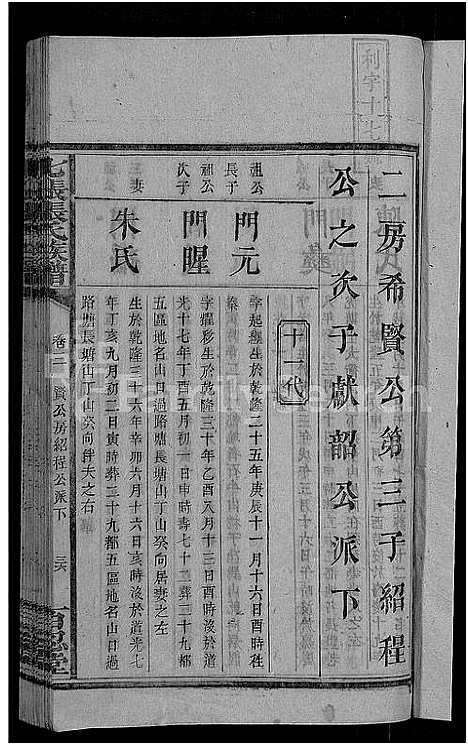 二房希賢公第三子紹程
公之次子獻韶公派下
十一代
祖公
長子
門元
字起
生於乾隆二十五年庚辰十一月十六日酉時往
秦
祖公
次子
門腥
字耀彩生於乾隆三十年乙酉八月十三日酉時歿於道
光十七年丁酉五月初一日申時壽七十三葬三十九都
五區地名山日過路塘長塘山丁山癸向居妻之左
妻
朱氏
生於乾隆三十六年辛卯六月十六日亥時歿於道光七
年丁亥九月初二日寅時葬三十九都五區地名山日過
路塘長塘山丁山癸向伴夫之右
七張張氏族譜
卷二
賢公房紹程公派下
三六
百忍堂
利字十七